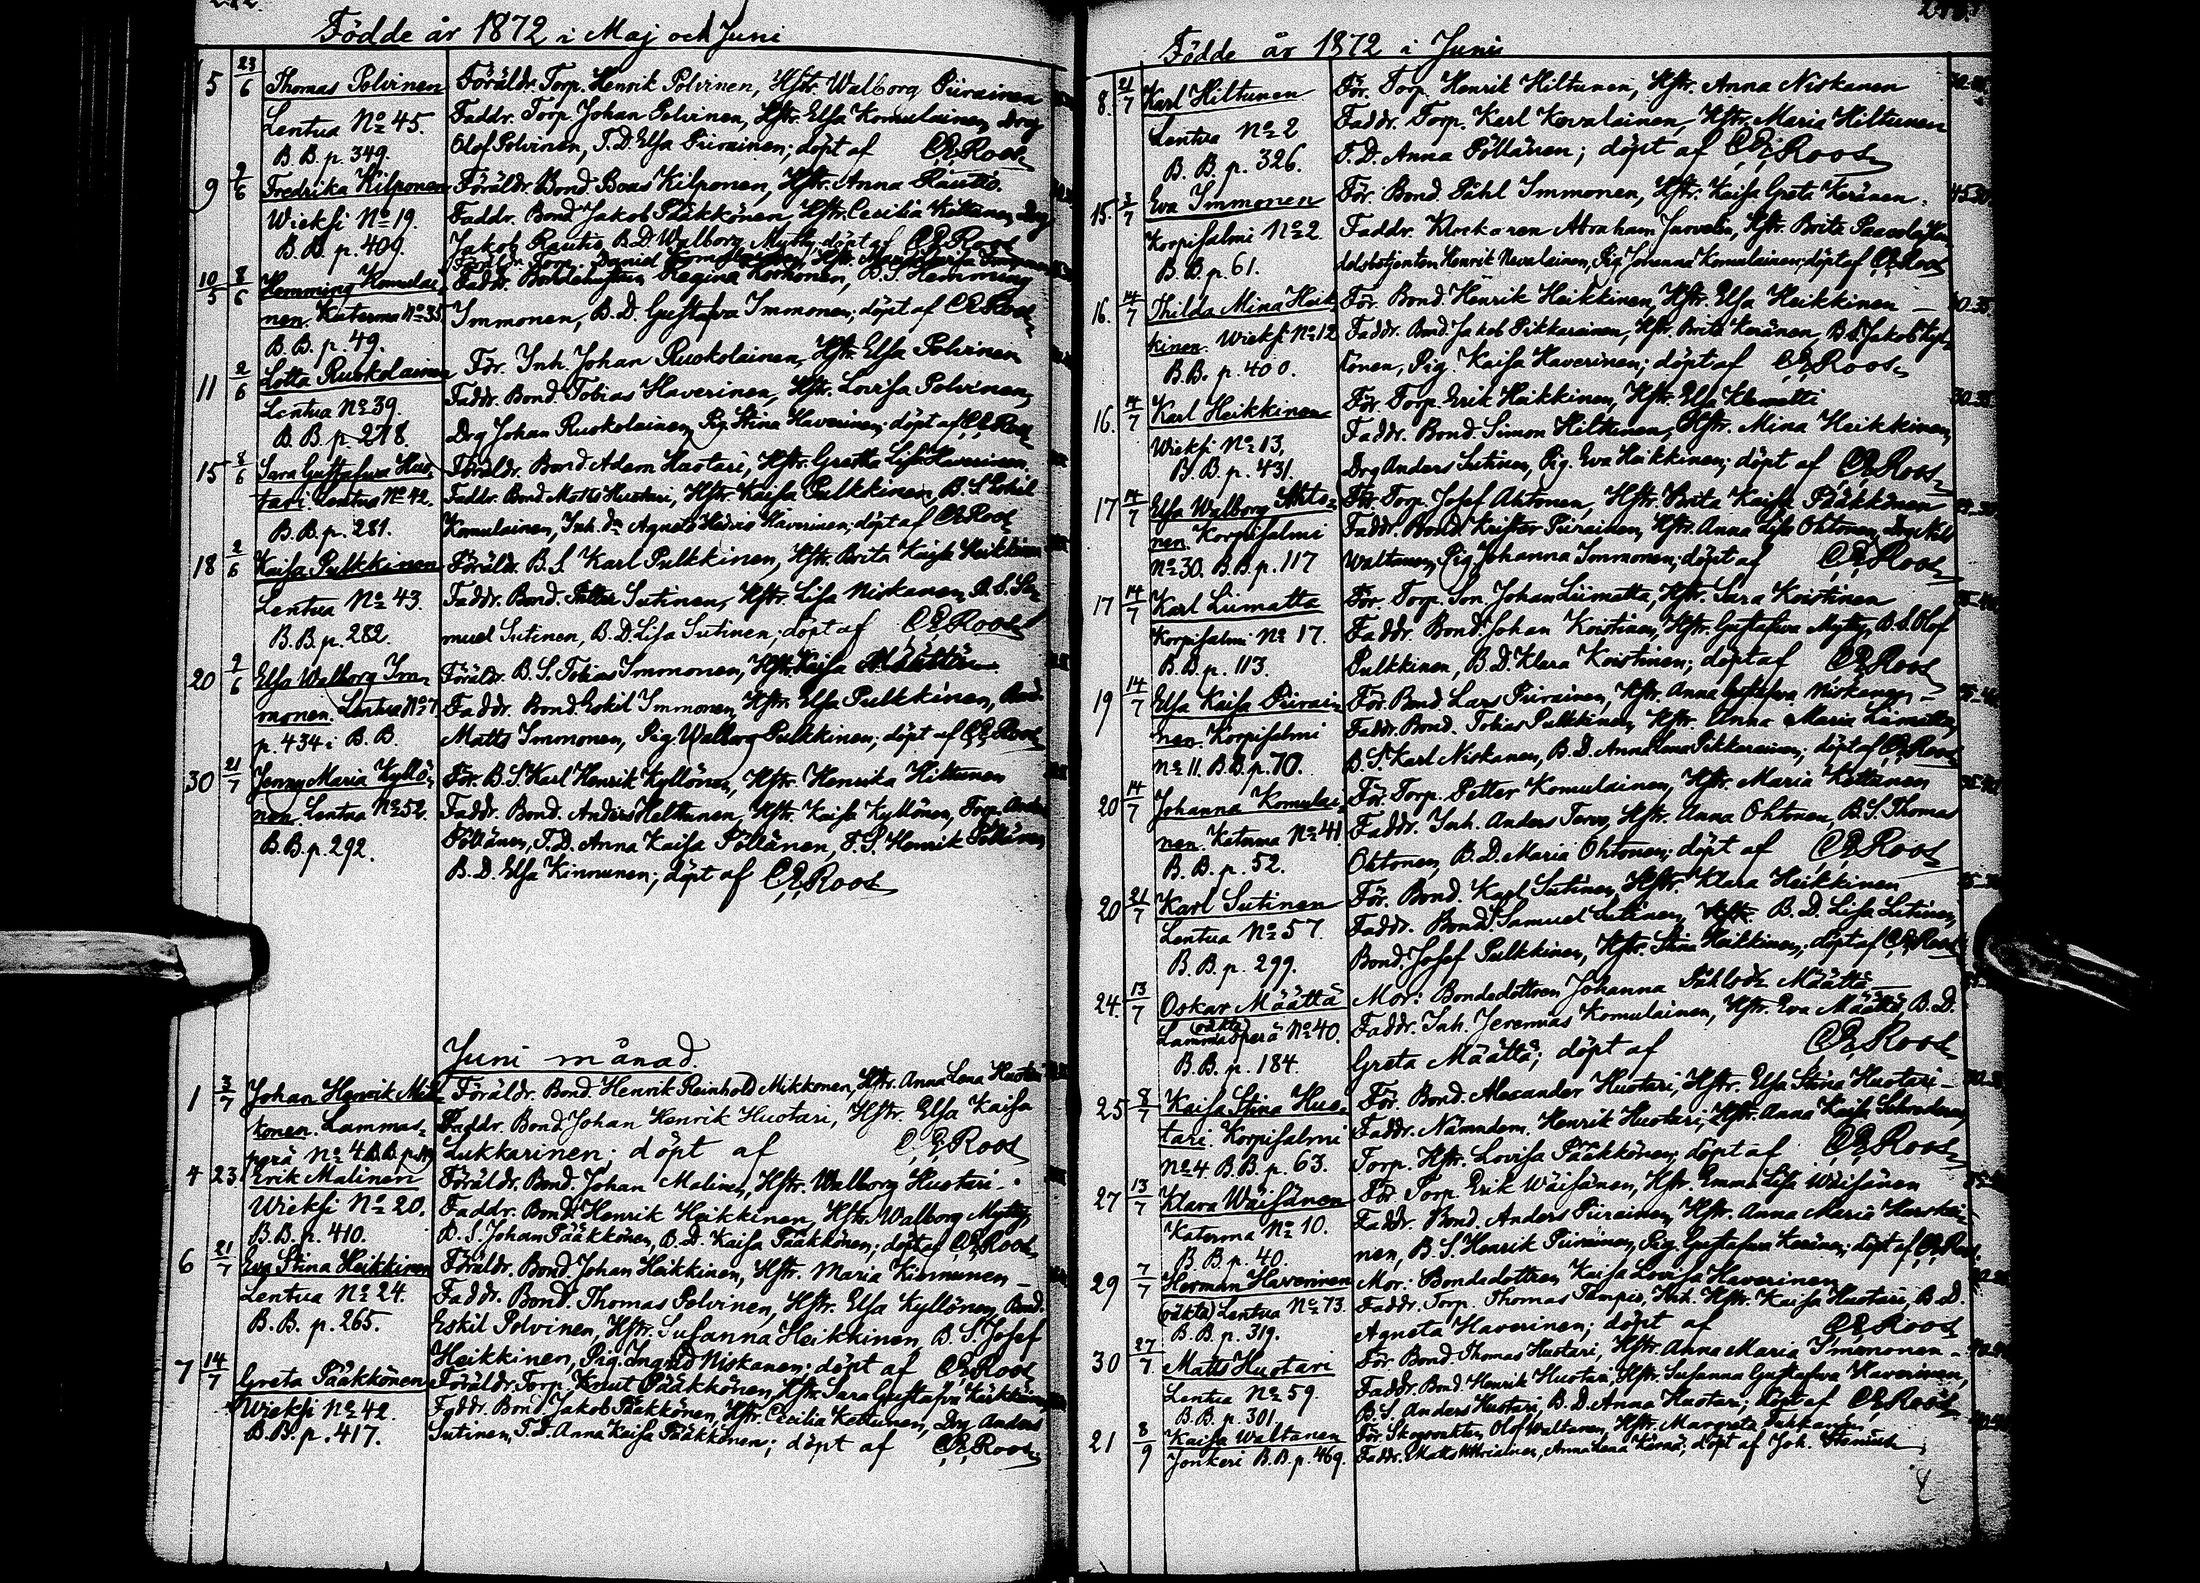 Födde år 1872 i Maj och Juni
5 23/6 Thomas Polvinen Föräldr. Torp. Henrik Polvinen, Hstr. Walborg Piirainen
Lentua No 45. Faddr. Torp. Johan Polvinen, Hstr. Elsa Komulainen, Drg
B.B. p. 349. Olof Polvinen, T.D. Elsa Piirainen; döpt af C.E. Roos
9 2/6 Fredrika Kilponen Föräldr. Bond. Boas Kilponen, Hstr. Anna Rautio.
Wieksi No 19. Faddr. Bond. Jakob Pääkkönen, Hstr. Cecilia Kettunen, Drg
B.B. p. 409. Jakob Rautio, B.D. Walborg Mytty; döpt af C.E. Roos
Föräldr. Torp. Daniel Komulainen, Hstr.
10/5 8/6 Hemming Komulai- Faddr. Regina Korhonen, B.S. Hemming
nen. Katerma No 35 Immonen, B.D. Gustafva Immonen; döpt af C.E. Roos
B.B. p. 49.
11 2/6 Lotta Ruokolainen För. Inh. Johan Ruokolainen, Hstr. Elsa Polvinen
Lentua No 39. Faddr. Bond. Tobias Haverinen, Hstr. Lovisa Polvinen,
B.B. p. 278. Drg Johan Ruokolainen, Pig. Stina Haverinen; döpt af C.E. Roos
15 8/6 Sara Gustafva Huo- Föräldr. Bond. Adam Huotari, Hstr. Gretha Lisa Haverinen.
tari. Lentua No 42. Faddr. Bond. Matts Huotari, Hstr. Kaisa Pulkkinen, B.S. Eskil
B.B. p. 281. Komulainen, Inh. Dr Agneta Hedvig Haverinen; döpt af C.E. Roos
18 2/6 Kaisa Pulkkinen Föräldr. B.S. Karl Pulkkinen, Hstr. Brita Kaisa Heikkinen
Lentua No 43. Faddr. Bond. Petter Sutinen, Hstr. Lisa Niskanen, B.S. Sa-
B.B. p. 282. muel Sutinen, B.D. Lisa Sutinen; döpt af C.E. Roos
20 2/6 Elsa Walborg Im- Föräldr. B.S. Tobias Immonen, Hstr. Kaisa Määttä
monen. Lentua No 7. Faddr. Bond. Eskil Immonen, Hstr. Elsa Pulkkinen, Bond.
p. 434 i B.B. Matts Immonen, Pig. Walborg Pulkkinen; döpt af C.E. Roos
30 21/7 Jenny Maria Kyllö- För. B.S. Karl Henrik Kyllönen, Hstr. Henrika Hiltunen
nen. Lentua No 52. Faddr. Bond. Anders Heltunen, Hstr. Kaisa Kyllönen, Torp. Anders
B.B. p. 292. Pöllänen, T.D. Anna Kaisa Pöllänen, T.S. Henrik Pöllänen,
B.D. Elsa Kinnunen; döpt af C.E. Roos
Juni månad.
1 3/7 Johan Henrik Mik- Föräldr. Bond. Henrik Reinhold Mikkonen, Hstr. Anna Lena Huotari
konen. Lammas- Faddr. Bond. Johan Henrik Huotari, Hstr. Elsa Kaisa
perä No 4. B.B. p. Lukkarinen; döpt af C.E. Roos
4 23 Erik Malinen Föräldr. Bond. Johan Malinen, Hstr. Walborg Huotari.
Wieksi No 20. Faddr. Bond. Henrik Heikkinen, Hstr. Walborg Mytty,
B.B. p. 410. B.S. Johan Pääkkönen, B.D. Kaisa Pääkkönen; döpt af C.E. Roos
6 21/7 Eva Stina Heikkinen Föräldr. Bond. Johan Heikkinen, Hstr. Maria Kinnunen
Lentua No 24. Faddr. Bond. Thomas Polvinen, Hstr. Elsa Kyllönen, Bond.
B.B. p. 265. Eskil Polvinen, Hstr. Susanna Heikkinen, B.S. Josef
Heikkinen, Pig. Ingrid Niskanen; döpt af C.E. Roos
7 14/7 Greta Pääkkönen Föräldr. Torp. Knut Pääkkönen, Hstr. Sara Gustafva
Wieksi No 42. Faddr. Bond. Jakob Pääkkönen, Hstr. Cecilia Kettunen, Drg Anders
B.B. p. 417. Sutinen, T.D. Anna Kaisa Pääkkönen; döpt af C.E. Roos
Födde år 1872 i Juni
8. 21/7 Karl Hiltunen För. Torp. Henrik Hiltunen, Hstr. Anna Niskanen
Lentua No 2 Faddr. Torp. Karl Kovalainen, Hstr. Maria Hiltunen
B.B. p. 326. T.D. Anna Pöllänen; döpt af C.E. Roos
15. 3/7 Eva Immonen För. Bond. Påhl Immonen, Hstr. Kaisa Greta Keränen. 45-30
Korpisalmi No 2. Faddr. Klockaren Abraham Juvelin, Hstr. Brita Paavola, Han-
B.B. p. 61. delsbetjenten Henrik Nevalainen, Pig. Johanna Komulainen; döpt af C.E. Roos
16. 14/7 Thilda Mina Heik- För. Bond. Henrik Heikkinen, Hstr. Elsa Heikkinen
kinen. Wieksi No 12 Faddr. Bond. Jakob Pikkarainen, Hstr. Brita Keränen, B.S. Jakob Kyl-
B.B. p. 400. lönen, Pig. Kaisa Haverinen; döpt af C.E. Roos
16. 14/7 Karl Heikkinen För. Torp. Erik Heikkinen, Hstr. Elsa Klemetti
Wieksi No 13. Faddr. Bond. Simon Hiltunen, Hstr. Mina Heikkinen,
B.B. p. 431. Drg Anders Sutinen, Pig. Eva Heikkinen; döpt af C.E. Roos
17 14/7 Elsa Walborg Ahto- För. Torp. Josef Ahtonen, Hstr. Brita Kaisa Pääkkönen
nen. Korpisalmi Faddr. Bond. Kristter Piirainen, Hstr. Anna Lisa Ohtonen, Drg Nils
No 30. B.B. p. 117 Waltanen, Pig. Johanna Immonen; döpt af C.E. Roos
17 14/7 Karl Liimatta För. Torp. Son Johan Liimatta, Hstr. Sara Koistinen
Korpisalmi No 17. Faddr. Bond. Johan Koistinen, Hstr. Gustafva Mytty, B.S. Olof
B.B. p. 113. Pulkkinen, B.D. Klara Koistinen; döpt af C.E. Roos
19 14/7 Elsa Kaisa Piirai- För. Bond. Lars Piirainen, Hstr. Anna Gustafva Niskanen
nen. Korpisalmi Faddr. Bond. Tobias Pulkkinen, Hstr. Anna Maria Liimatta,
No 11. B.B. p. 70. B.S. Karl Niskanen, B.D. Anna Lena Pikkarainen; döpt af C.E. Roos
20 14/7 Johanna Komulai- För. Torp. Petter Komulainen, Hstr. Maria Kettunen
nen. Katerma No 41. Faddr. Inh. Anders Tervo, Hstr. Anna Ohtonen, B.S. Thomas
B.B. p. 52. Ohtonen, B.D. Maria Ohtonen; döpt af C.E. Roos
20 21/7 Karl Sutinen För. Bond. Karl Sutinen, Hstr. Klara Heikkinen
Lentua No 57. Faddr. Bond. Samuel Sutinen, B.D. Lisa Sutinen,
B.B. p. 299. Bond. Josef Pulkkinen, Hstr. Stina Heikkinen; döpt af C.E. Roos
24. 13/7 Oskar Määttä Mor: Bondedottren Johanna Määttä
(oäkta) Lammasperä No 40. Faddr. Inh. Jeremias Komulainen, Hstr. Eva Määttä, B.D.
B.B. p. 184. Greta Määttä; döpt af C.E. Roos
25 8/7 Kaisa Stina Huo- För. Bond. Alexander Huotari, Hstr. Elsa Stina Huotari
tari. Korpisalmi Faddr. Nämndem. Henrik Huotari, Hstr. Anna Kaisa Schroderus,
No 4 B.B. p. 63. Torp. Hstr. Lovisa Pääkkönen; döpt af C.E. Roos
27 13/7 Klara Wäisänen För. Torp. Erik Wäisänen, Hstr. Emma Lisa Wäisänen
Katerma No 10. Faddr. Bond. Anders Piirainen, Hstr. Anna Maria Hurskai-
B.B. p. 40. nen, B.S. Henrik Piirainen, Pig. Gustafva Keränen; döpt af C.E. Roos
29 7/7 Herman Haverinen Mor: Bondedottren Kaisa Lovisa Haverinen
(oäkta) Lentua No 73. Faddr. Torp. Thomas Timper, Inh. Hstr. Kaisa Huotari, B.D.
B.B. p. 319. Agneta Haverinen; döpt af C.E. Roos
30 27/7 Matts Huotari För. Bond. Thomas Huotari, Hstr. Anna Maria Immonen
Lentua No 59. Faddr. Bond. Henrik Huotari, Hstr. Susanna Gustafva Haverinen,
B.B. p. 301. B.S. Anders Huotari, B.D. Anna Huotari; döpt af C.E. Roos
21 8/9 Kaisa Waltanen För. Skogsvakten Olof Waltanen, Hstr. Margreta
Jonkeri B.B. p. 469. Faddr. Matts, Anna Lena; döpt af Joh. Stenius